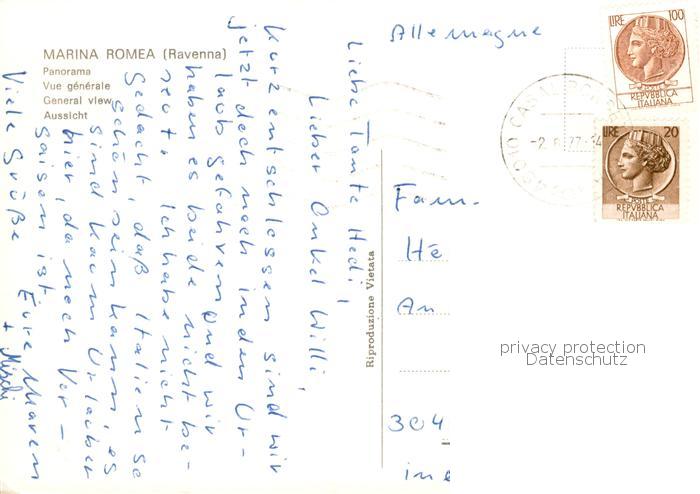 MARINA ROMEA (Ravenna)
Panorama
Vue générale
General view
Aussicht
Liebe Tante Hedi,
Lieber Onkel Willi,
kurz entschlossen sind wir
jetzt doch noch in den Ur-
laub gefahren und wir
haben es beide nicht be-
reut. Ich habe nicht
gedacht, daß Italien so
schön sein kann, es
sind kaum Urlauber
hier, da noch Vor-
saison ist.
Viele Grüße
Eure Maren
+ Mischi
Riproduzione Vietata
Allemagne
LIRE 100
REPVBBLICA
ITALIANA
LIRE 20
REPVBBLICA
ITALIANA
Fam.
He
An
304
in
privacy protection
Datenschutz